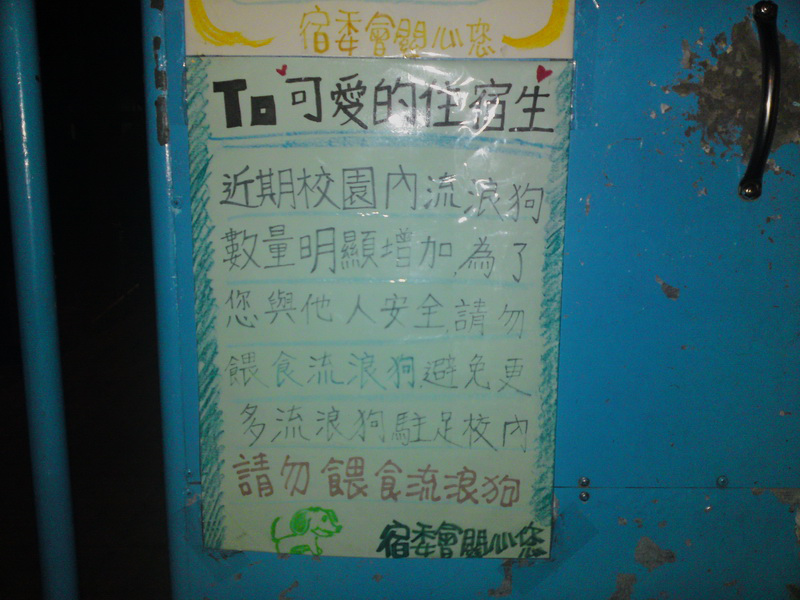 宿委會關心您
To可愛的住宿生
近期校園內流浪狗
數量明顯增加,為了
您與他人安全,請勿
餵食流浪狗,避免更
多流浪狗駐足校內
請勿餵食流浪狗
宿委會關心您